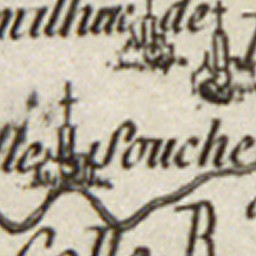 milhac de
lle Souche
Colle R